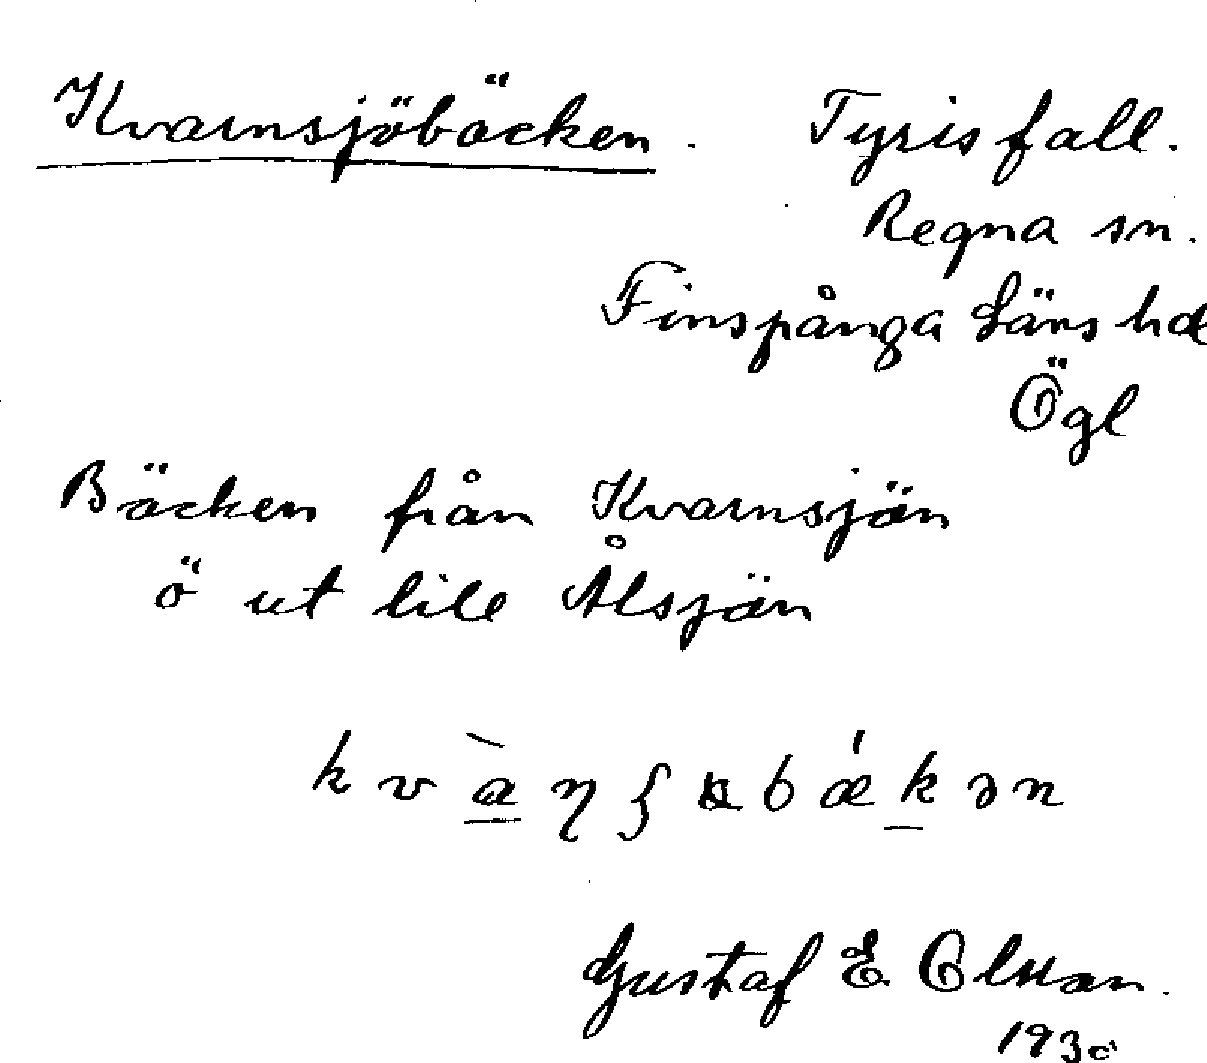 Kvarnsjöbäcken. Tyrisfall.
Regna sn.
Finspånga läns hd
Ögl
Bäcken från Kvarnsjön
ö ut lill Ålsjön
Gustaf E Olsson.
1930